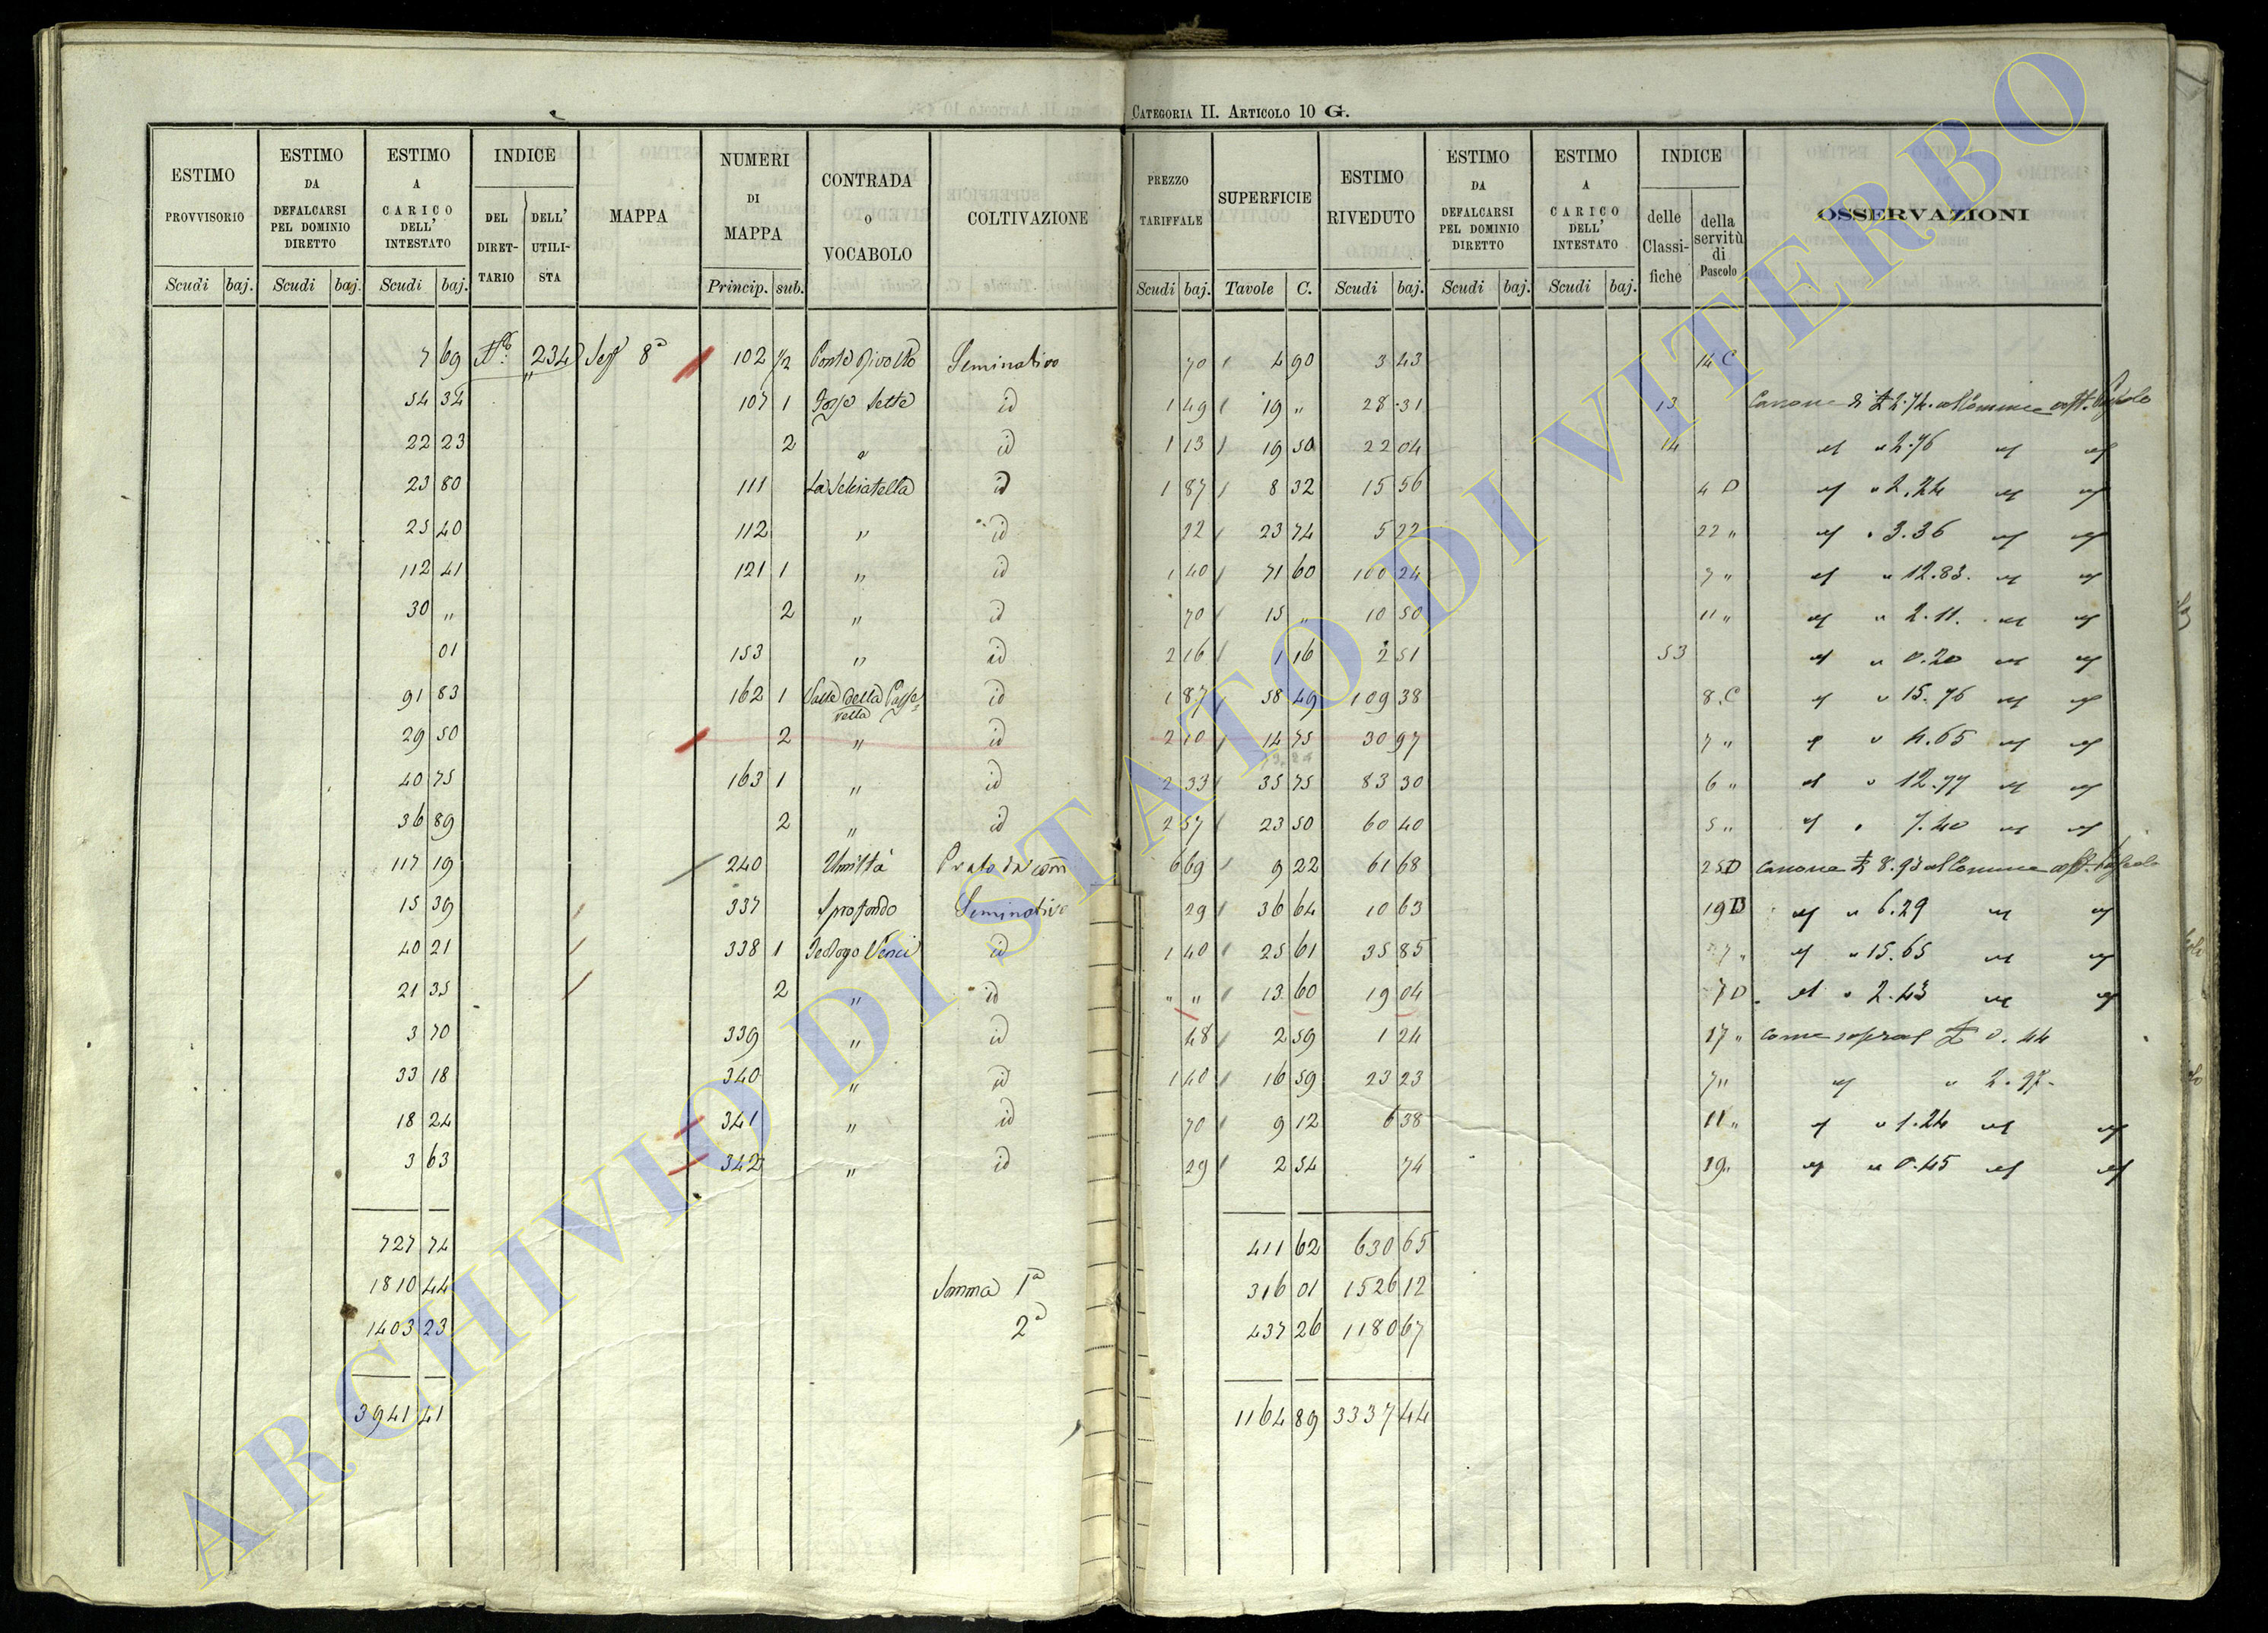 CATEGORIA II. ARTICOLO 10 G.
ESTIMO PROVVISORIO Scudi baj. ESTIMO DA DEFALCARSI PEL DOMINIO DIRETTO Scudi baj. ESTIMO A CARICO DELL' INTESTATO Scudi baj. INDICE DEL DIRETTARIO DELL' UTILISTA MAPPA NUMERI DI MAPPA Princip. sub. CONTRADA O VOCABOLO COLTIVAZIONE PREZZO TARIFFALE Scudi baj. SUPERFICIE Tavole C. ESTIMO RIVEDUTO Scudi baj. ESTIMO DA DEFALCARSI PEL DOMINIO DIRETTO Scudi baj. ESTIMO A CARICO DELL' INTESTATO Scudi baj. INDICE delle Classifiche della servitù di Pascolo OSSERVAZIONI
7 69 234 8ª 102 1/2 Seminativo 70 4 90 3 43 14 C
54 34 107 1 Sette id 1 49 19 " 28 31 13 Canone di 2.74
22 23 2 " id 1 13 19 50 22 04 14 " 2.76
23 80 111 La Schiatella id 1 87 8 32 15 56 4 D " 2.24
25 40 112 " id 22 23 74 5 22 22 " " 3.36
112 41 121 1 " id 1 40 71 60 100 24 7 " " 12.83.
30 " 2 " id 70 15 " 10 50 11 " " 2.11.
01 153 " id 2 16 1 16 2 51 53 " 0.20
91 83 162 1 Valle della id 1 87 58 49 109 38 8 C " 15.76
29 50 2 " id 2 10 14 75 30 97 7 " " 4.65
40 75 163 1 " id 2 33 35 75 83 30 6 " " 12.77
36 89 2 " id 2 57 23 50 60 40 5 " " 7.40
117 19 240 Umiltà Prato 6 69 9 22 61 68 25 D Canone 8.93
15 39 337 Sprofondo Seminativo 29 36 64 10 63 19 D " 6.29
40 21 338 1 id 1 40 25 61 35 85 7 " " 15.65
21 35 2 " id " " 13 60 19 04 7 D " 2.43
3 70 339 " id 48 2 59 1 24 17 " Come sopra 0.44
33 18 340 " id 1 40 16 59 23 23 7 " "
18 24 341 " id 70 9 12 6 38 11 " " 1.24
3 63 342 " id 29 2 54 74 19 " " 0.45
727 74 411 62 630 65
1810 44 Somma 1ª 316 01 1526 12
1403 23 2ª 437 26 1180 67
3941 41 1164 89 3337 44
ARCHIVIO DI STATO DI VITERBO